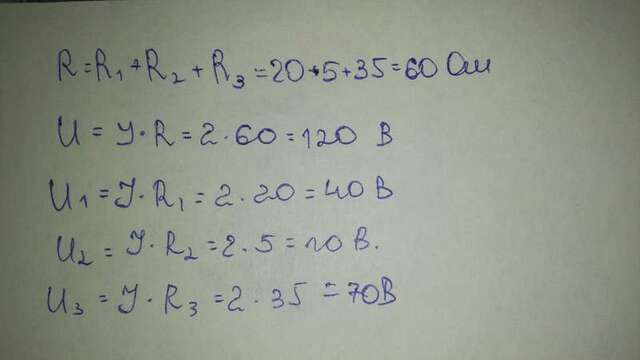 R = R₁ + R₂ + R₃ = 20 + 5 + 35 = 60 Ом
U = J · R = 2 · 60 = 120 В
U₁ = J · R₁ = 2 · 20 = 40 В
U₂ = J · R₂ = 2 · 5 = 10 В.
U₃ = J · R₃ = 2 · 35 = 70 В